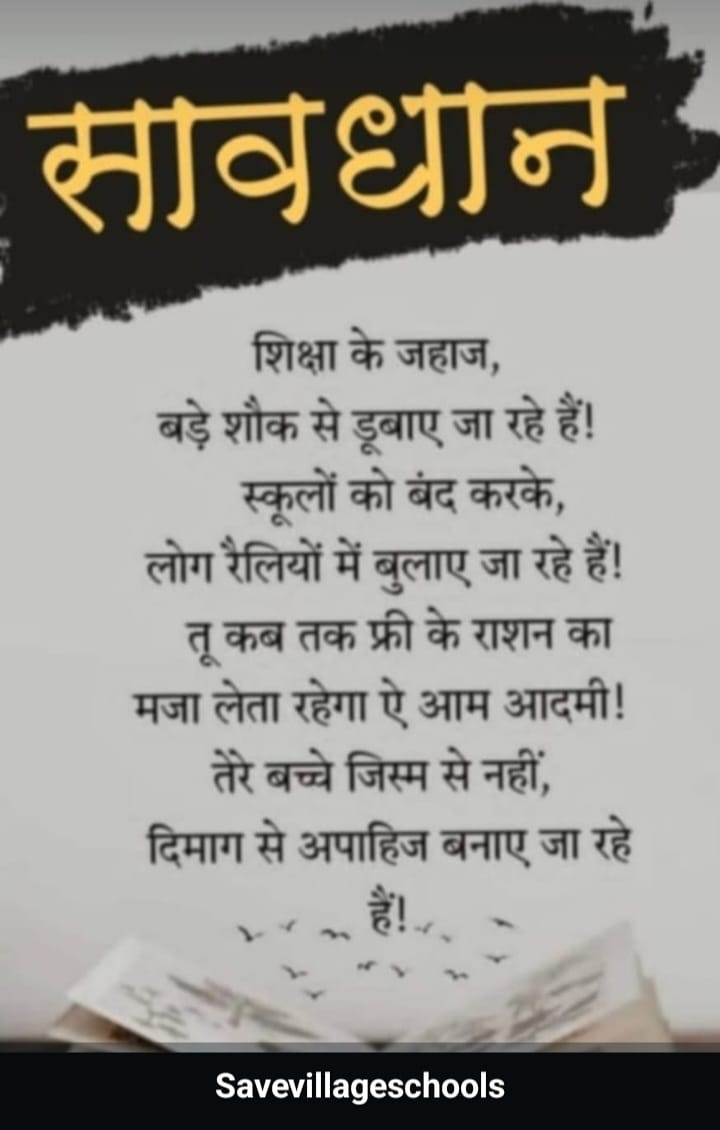 सावधान
शिक्षा के जहाज,
बड़े शौक से डूबाए जा रहे हैं!
स्कूलों को बंद करके,
लोग रैलियों में बुलाए जा रहे हैं!
तू कब तक फ्री के राशन का
मजा लेता रहेगा ऐ आम आदमी!
तेरे बच्चे जिस्म से नहीं,
दिमाग से अपाहिज बनाए जा रहे
हैं!
Savevillageschools